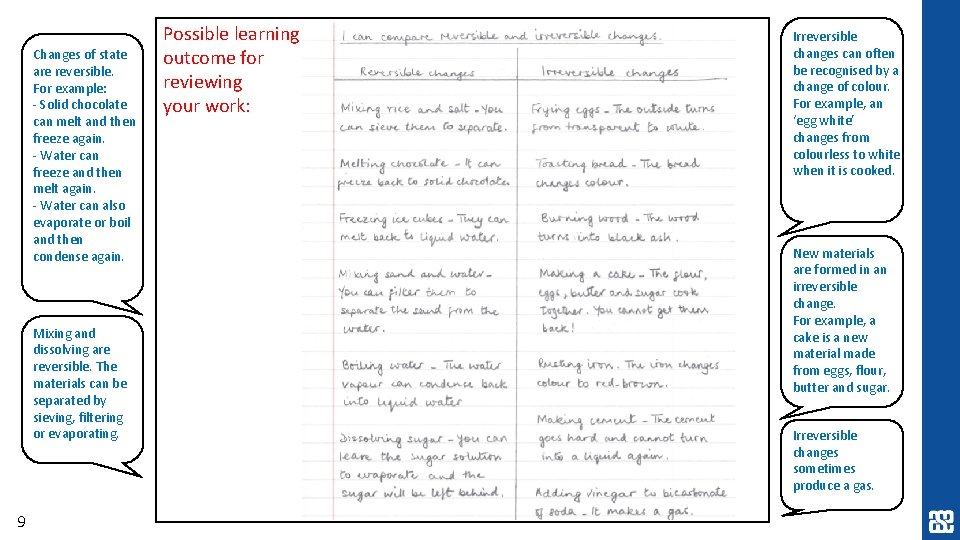 Changes of state
are reversible.
For example:
- Solid chocolate
can melt and then
freeze again.
- Water can
freeze and then
melt again.
- Water can also
evaporate or boil
and then
condense again.
Mixing and
dissolving are
reversible. The
materials can be
separated by
sieving, filtering
or evaporating.
Possible learning
outcome for
reviewing
your work:
I can compare reversible and irreversible changes.
Reversible changes
Mixing rice and salt - You
can sieve them to separate.
Melting chocolate - It can
freeze back to solid chocolate.
Freezing ice cubes - They can
melt back to liquid water.
Mixing sand and water -
You can filter them to
separate the sand from the
water.
Boiling water - The water
vapour can condense back
into liquid water
Dissolving sugar - You can
leave the sugar solution
to evaporate and the
sugar will be left behind.
Irreversible changes
Frying eggs - The outside turns
from transparent to white.
Toasting bread - The bread
changes colour.
Burning wood - The wood
turns into black ash.
Making a cake - The flour,
eggs, butter and sugar cook
together. You cannot get them
back!
Rusting iron. The iron changes
colour to red-brown.
Making cement - The cement
goes hard and cannot turn
into a liquid again.
Adding vinegar to bicarbonate
of soda - It makes a gas.
Irreversible
changes can often
be recognised by a
change of colour.
For example, an
‘egg white’
changes from
colourless to white
when it is cooked.
New materials
are formed in an
irreversible
change.
For example, a
cake is a new
material made
from eggs, flour,
butter and sugar.
Irreversible
changes
sometimes
produce a gas.
9